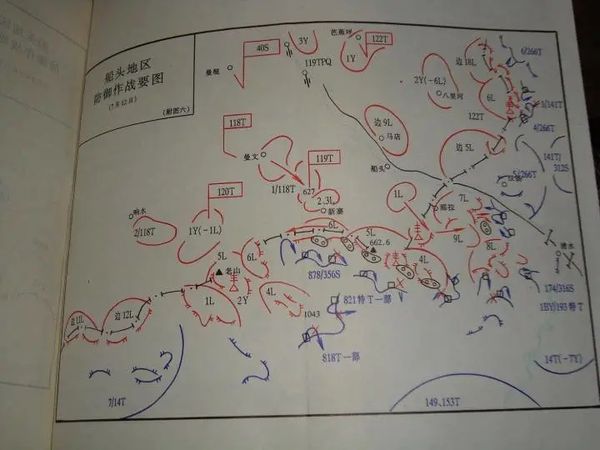 船头地区
防御作战要图
(7月12日)
(附图六)
40S
3Y
芭蕉坪
122T
1Y
119TPQ
曼棍
边18L
6/266T
2Y(-6L)
八里河
6L
3/141T
122T
边9L
马店
4/266T
118T
边5L
曼文
119T
船头
141T/
312S
5/266T
1/118T
627
120T
2.3L
新寨
1L
那拉
7L
响水
2/118T
1Y(-1L)
6L
5L
662.6
9L
8L
清水
5L
6L
老山
4L
878/356S
174/316S
1L
2Y
4L
821特T一部
1BY/193特T
边11L
边12L
1043
818T一部
14T(-7Y)
7/14T
149、153T